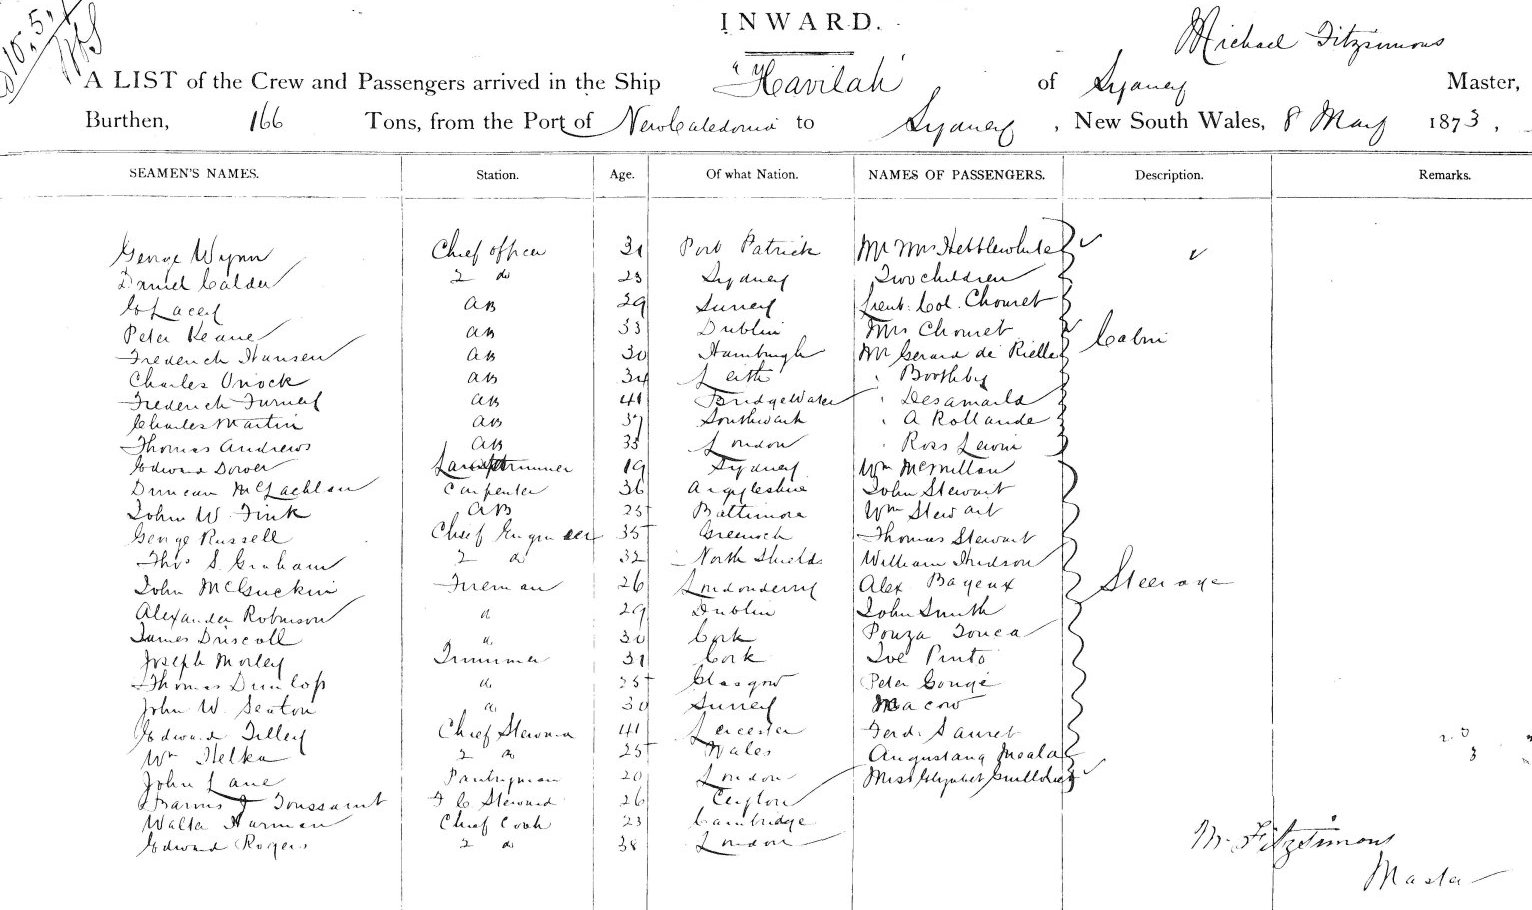 INWARD.
Michael Fitzsimons
A LIST of the Crew and Passengers arrived in the Ship "Havilah" of Sydney Master,
Burthen, 166 Tons, from the Port of New Caledonia to Sydney, New South Wales, 8 May 1873,
SEAMEN'S NAMES. Station. Age. Of what Nation. NAMES OF PASSENGERS. Description. Remarks.
George Wynn Chief officer 31 Port Patrick Mr Mrs Hebblewhite
Daniel Calder 2 do 23 Sydney Two children
G Lacey AB 29 Surrey Lieut. Col. Chouret
Peter Keane AB 33 Dublin Mrs Chouret Cabin
Frederick Hansen AB 30 Hamburgh Mr Gerard de Rielle
Charles AB 34 Leith " Boothby
Frederick Turney AB 41 BridgeWater " Desamarld
Charles Martin AB 37 Southwark " A Rollande
Thomas Andrews AB 33 London " Ross Lewin
Edward Dower 19 Sydney Wm McMillan
Duncan McLachlan Carpenter 36 Argyleshire John Stewart
John W. Fink AB 25 Baltimore Wm Stewart
George Russell Chief Engineer 35 Greenock Thomas Stewart
Thos S. Graham 2 d 32 North Shields William Hudson
John McGuckin Fireman 26 Londonderry Alex Bayeux Steerage
Alexander Robinson d 29 Dublin John Smith
James Driscoll d 30 Cork Ponza Touca
Joseph Morley Trimmer 31 Cork Joe Pinto
Thomas Dunlop d 25 Glasgow Peter Gouge
John W. Seaton d 30 Surrey Macow
Edward Tilley Chief Steward 41 Leicester Ferd. Sauret
Wm Helka 2 d 25 Wales Augustang Meala
John Lane Pantryman 20 London Miss Elizabet
Toussaint F C Steward 26 Ceylon
Walter Harman Chief Cook 23 Cambridge
Edward Rogers 2 d 38 London
M. Fitzsimons
Master